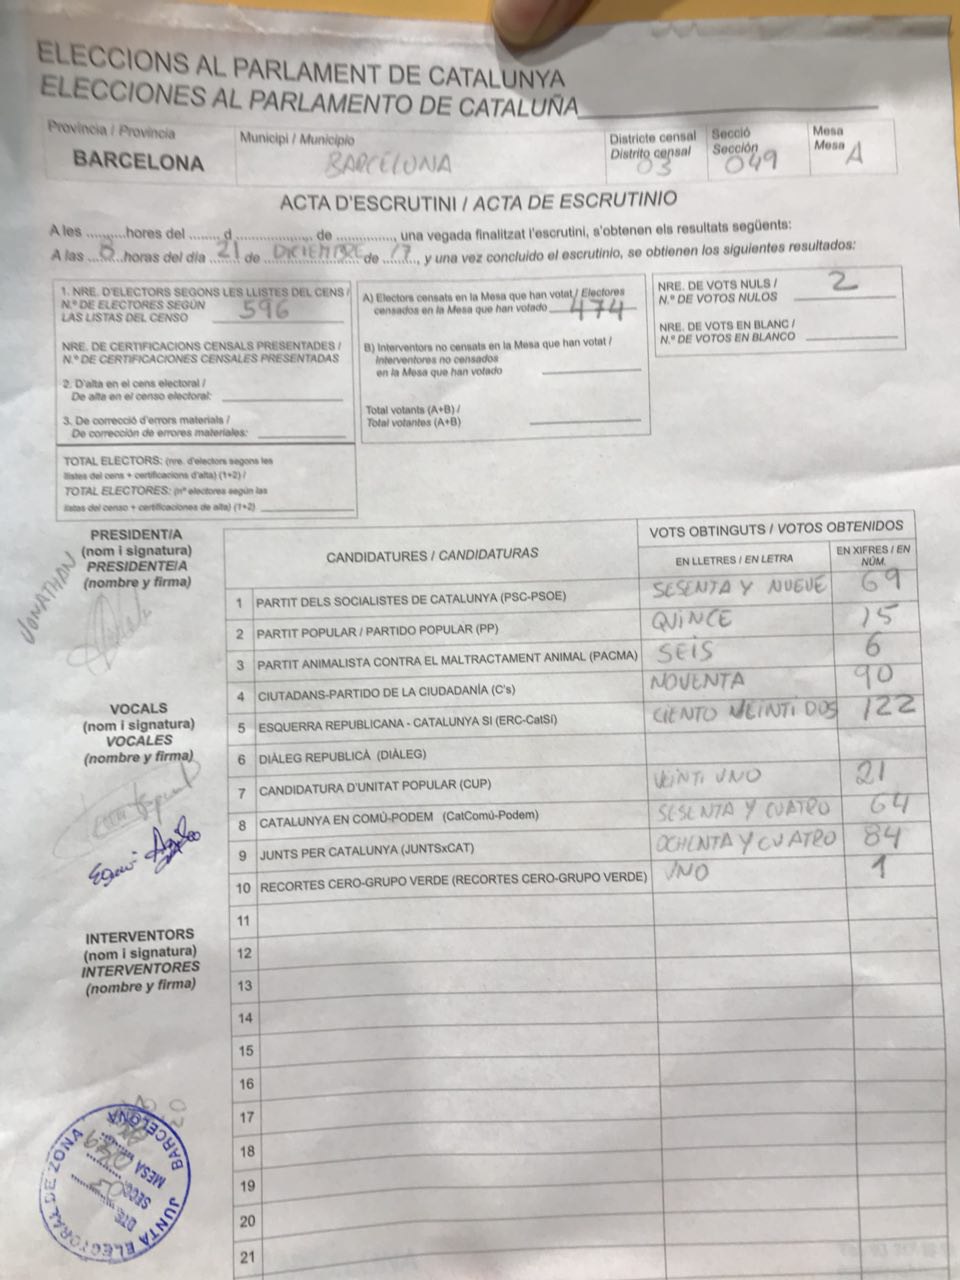 ELECCIONS AL PARLAMENT DE CATALUNYA
ELECCIONES AL PARLAMENTO DE CATALUÑA
Província / Provincia
BARCELONA
Municipi / Municipio
BARCELONA
Districte censal
Distrito censal
03
Secció
Sección
049
Mesa
Mesa A
ACTA D'ESCRUTINI / ACTA DE ESCRUTINIO
A les ..........hores del ....... d .................... de ..............., una vegada finalitzat l'escrutini, s'obtenen els resultats següents:
A las ...8...horas del día ..21.. de ..DICIEMBRE.. de ..17.., y una vez concluido el escrutinio, se obtienen los siguientes resultados:
1. NRE. D'ELECTORS SEGONS LES LLISTES DEL CENS /
N.º DE ELECTORES SEGÚN
LAS LISTAS DEL CENSO 596
NRE. DE CERTIFICACIONS CENSALS PRESENTADES /
N.º DE CERTIFICACIONES CENSALES PRESENTADAS
2. D'alta en el cens electoral /
De alta en el censo electoral:
3. De correcció d'errors materials /
De corrección de errores materiales:
TOTAL ELECTORS: (nre. d'electors segons les
llistes del cens + certificacions d'alta) (1+2) /
TOTAL ELECTORES: (nº electores según las
listas del censo + certificaciones de alta) (1+2)
A) Electors censats en la Mesa que han votat / Electores
censados en la Mesa que han votado 474
B) Interventors no censats en la Mesa que han votat /
Interventores no censados
en la Mesa que han votado
Total votants (A+B) /
Total votantes (A+B)
NRE. DE VOTS NULS /
N.º DE VOTOS NULOS 2
NRE. DE VOTS EN BLANC /
N.º DE VOTOS EN BLANCO
PRESIDENT/A
(nom i signatura)
PRESIDENTE/A
(nombre y firma)
JONATHAN
VOCALS
(nom i signatura)
VOCALES
(nombre y firma)
INTERVENTORS
(nom i signatura)
INTERVENTORES
(nombre y firma)
CANDIDATURES / CANDIDATURAS
VOTS OBTINGUTS / VOTOS OBTENIDOS
EN LLETRES / EN LETRA
EN XIFRES / EN NÚM.
1 PARTIT DELS SOCIALISTES DE CATALUNYA (PSC-PSOE) SESENTA Y NUEVE 69
2 PARTIT POPULAR / PARTIDO POPULAR (PP) QUINCE 15
3 PARTIT ANIMALISTA CONTRA EL MALTRACTAMENT ANIMAL (PACMA) SEIS 6
4 CIUTADANS-PARTIDO DE LA CIUDADANÍA (C's) NOVENTA 90
5 ESQUERRA REPUBLICANA - CATALUNYA SI (ERC-CatSí) CIENTO VEINTI DOS 122
6 DIÀLEG REPUBLICÀ (DIÀLEG)
7 CANDIDATURA D'UNITAT POPULAR (CUP) VEINTI UNO 21
8 CATALUNYA EN COMÚ-PODEM (CatComú-Podem) SESENTA Y CUATRO 64
9 JUNTS PER CATALUNYA (JUNTSxCAT) OCHENTA Y CUATRO 84
10 RECORTES CERO-GRUPO VERDE (RECORTES CERO-GRUPO VERDE) UNO 1
11
12
13
14
15
16
17
18
19
20
21
JUNTA ELECTORAL DE ZONA BARCELONA
DTE.
SECC. 03
MESA